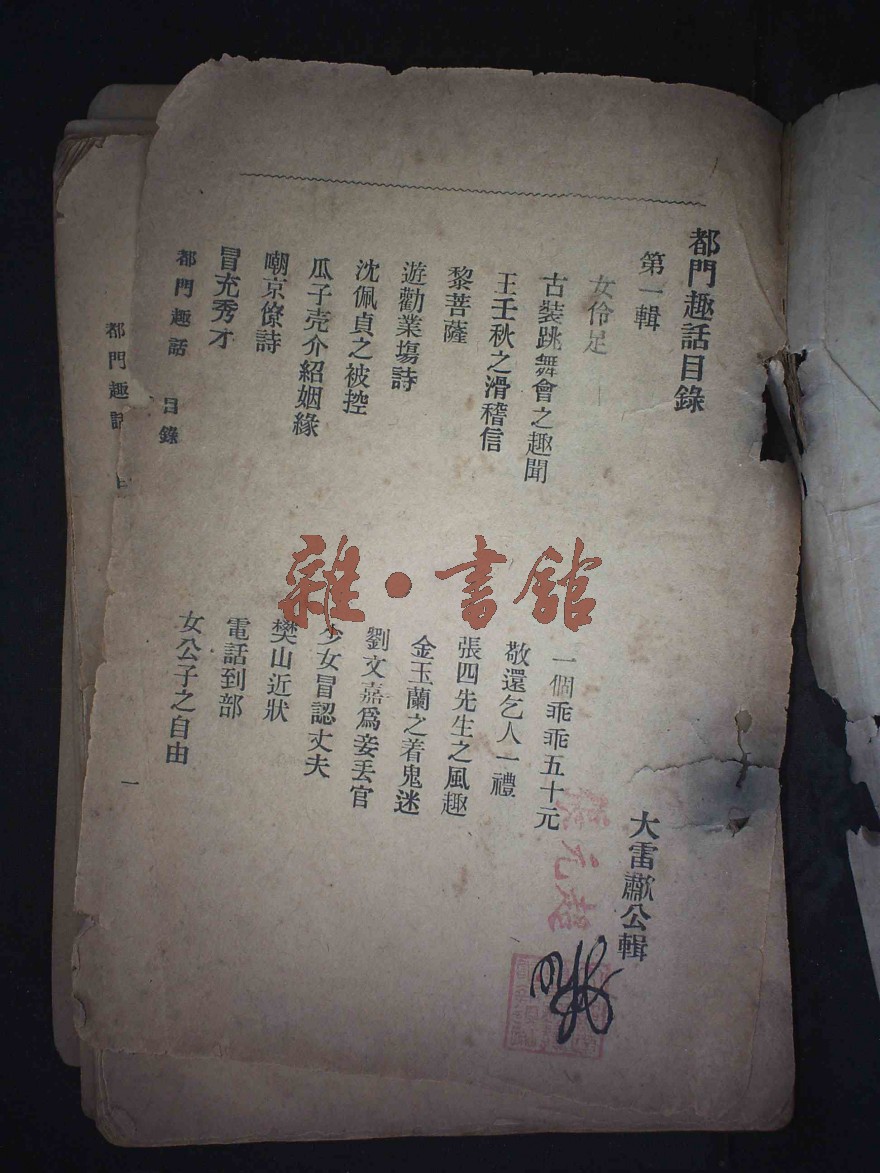 都門趣話目錄
大雷歗公輯
第一輯
女伶足
一個乖乖五十元
古裝跳舞會之趣聞
敬還乞人一禮
王壬秋之滑稽信
張四先生之風趣
黎菩薩
金玉蘭之着鬼迷
遊勸業塲詩
劉文嘉爲妾丟官
沈佩貞之被控
少女冒認丈夫
瓜子壳介紹姻緣
樊山近狀
嘲京僚詩
電話到部
冒充秀才
女公子之自由
都門趣話 目錄
一
都門趣話
雜·書舘